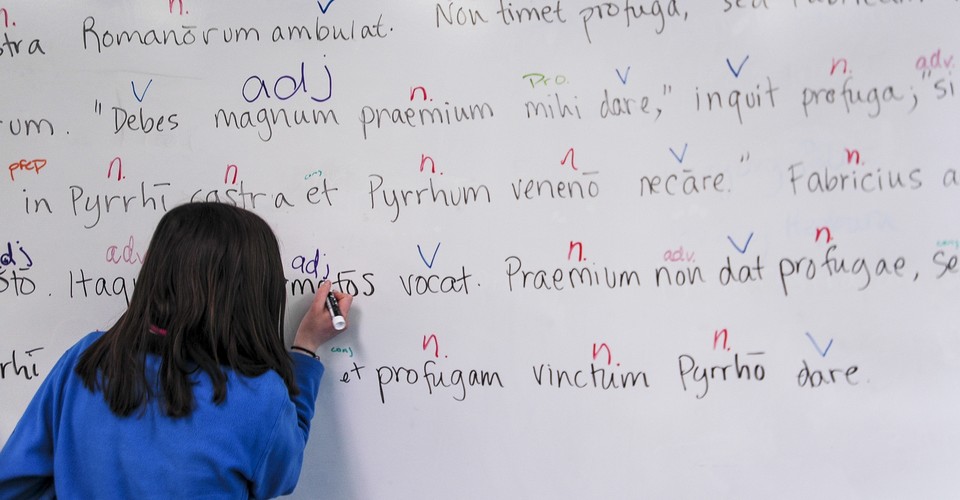 n. n. V
tra Romanōrum ambulat. Non timet profuga, sed
V adj n. Pro. V V n. adv.
um. "Debes magnum praemium mihi dare," inquit profuga; "si
prep n. n. conj n. n V n.
in Pyrrhī castra et Pyrrhum venenō necāre." Fabricius a
dj adv adj V n. adv. V n. conj
stō. Itaq mātōs vocat. Praemium non dat profugae, se
conj n. n. n. V
rhī et profugam vinctum Pyrrhō dare.